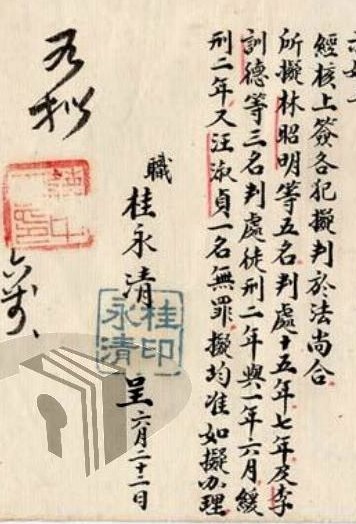 經核上簽各犯擬判於法尚合
所擬林昭明等五名判處十五年七年及李
訓德等三名判處徒刑二年與一年六月緩
刑二年又汪淑貞一名無罪擬均准如擬办理
職 桂永清 呈 六月二十二日
桂印永清
如拟